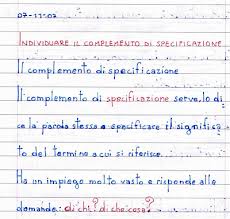 07-11-07
INDIVIDUARE IL COMPLEMENTO DI SPECIFICAZIONE
Il complemento di specificazione
Il complemento di specificazione serve, lo di
ce la parola stessa a specificare il significa
to del termine a cui si riferisce.
Ha un impiego molto vasto e risponde alle
domande: di chi? di che cosa?